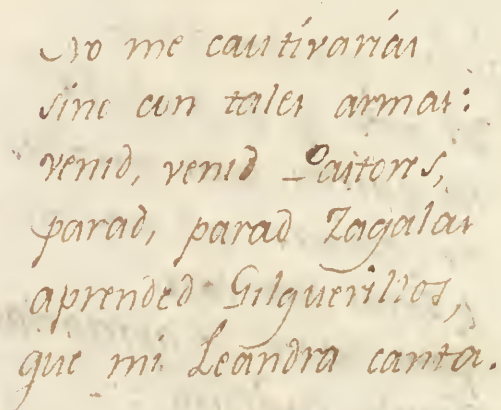 No me cautívarías
sino con tales armas:
venid, venid Pastores,
parad, parad Zagalas
aprended Gilguerillos,
que mi Leandra canta.